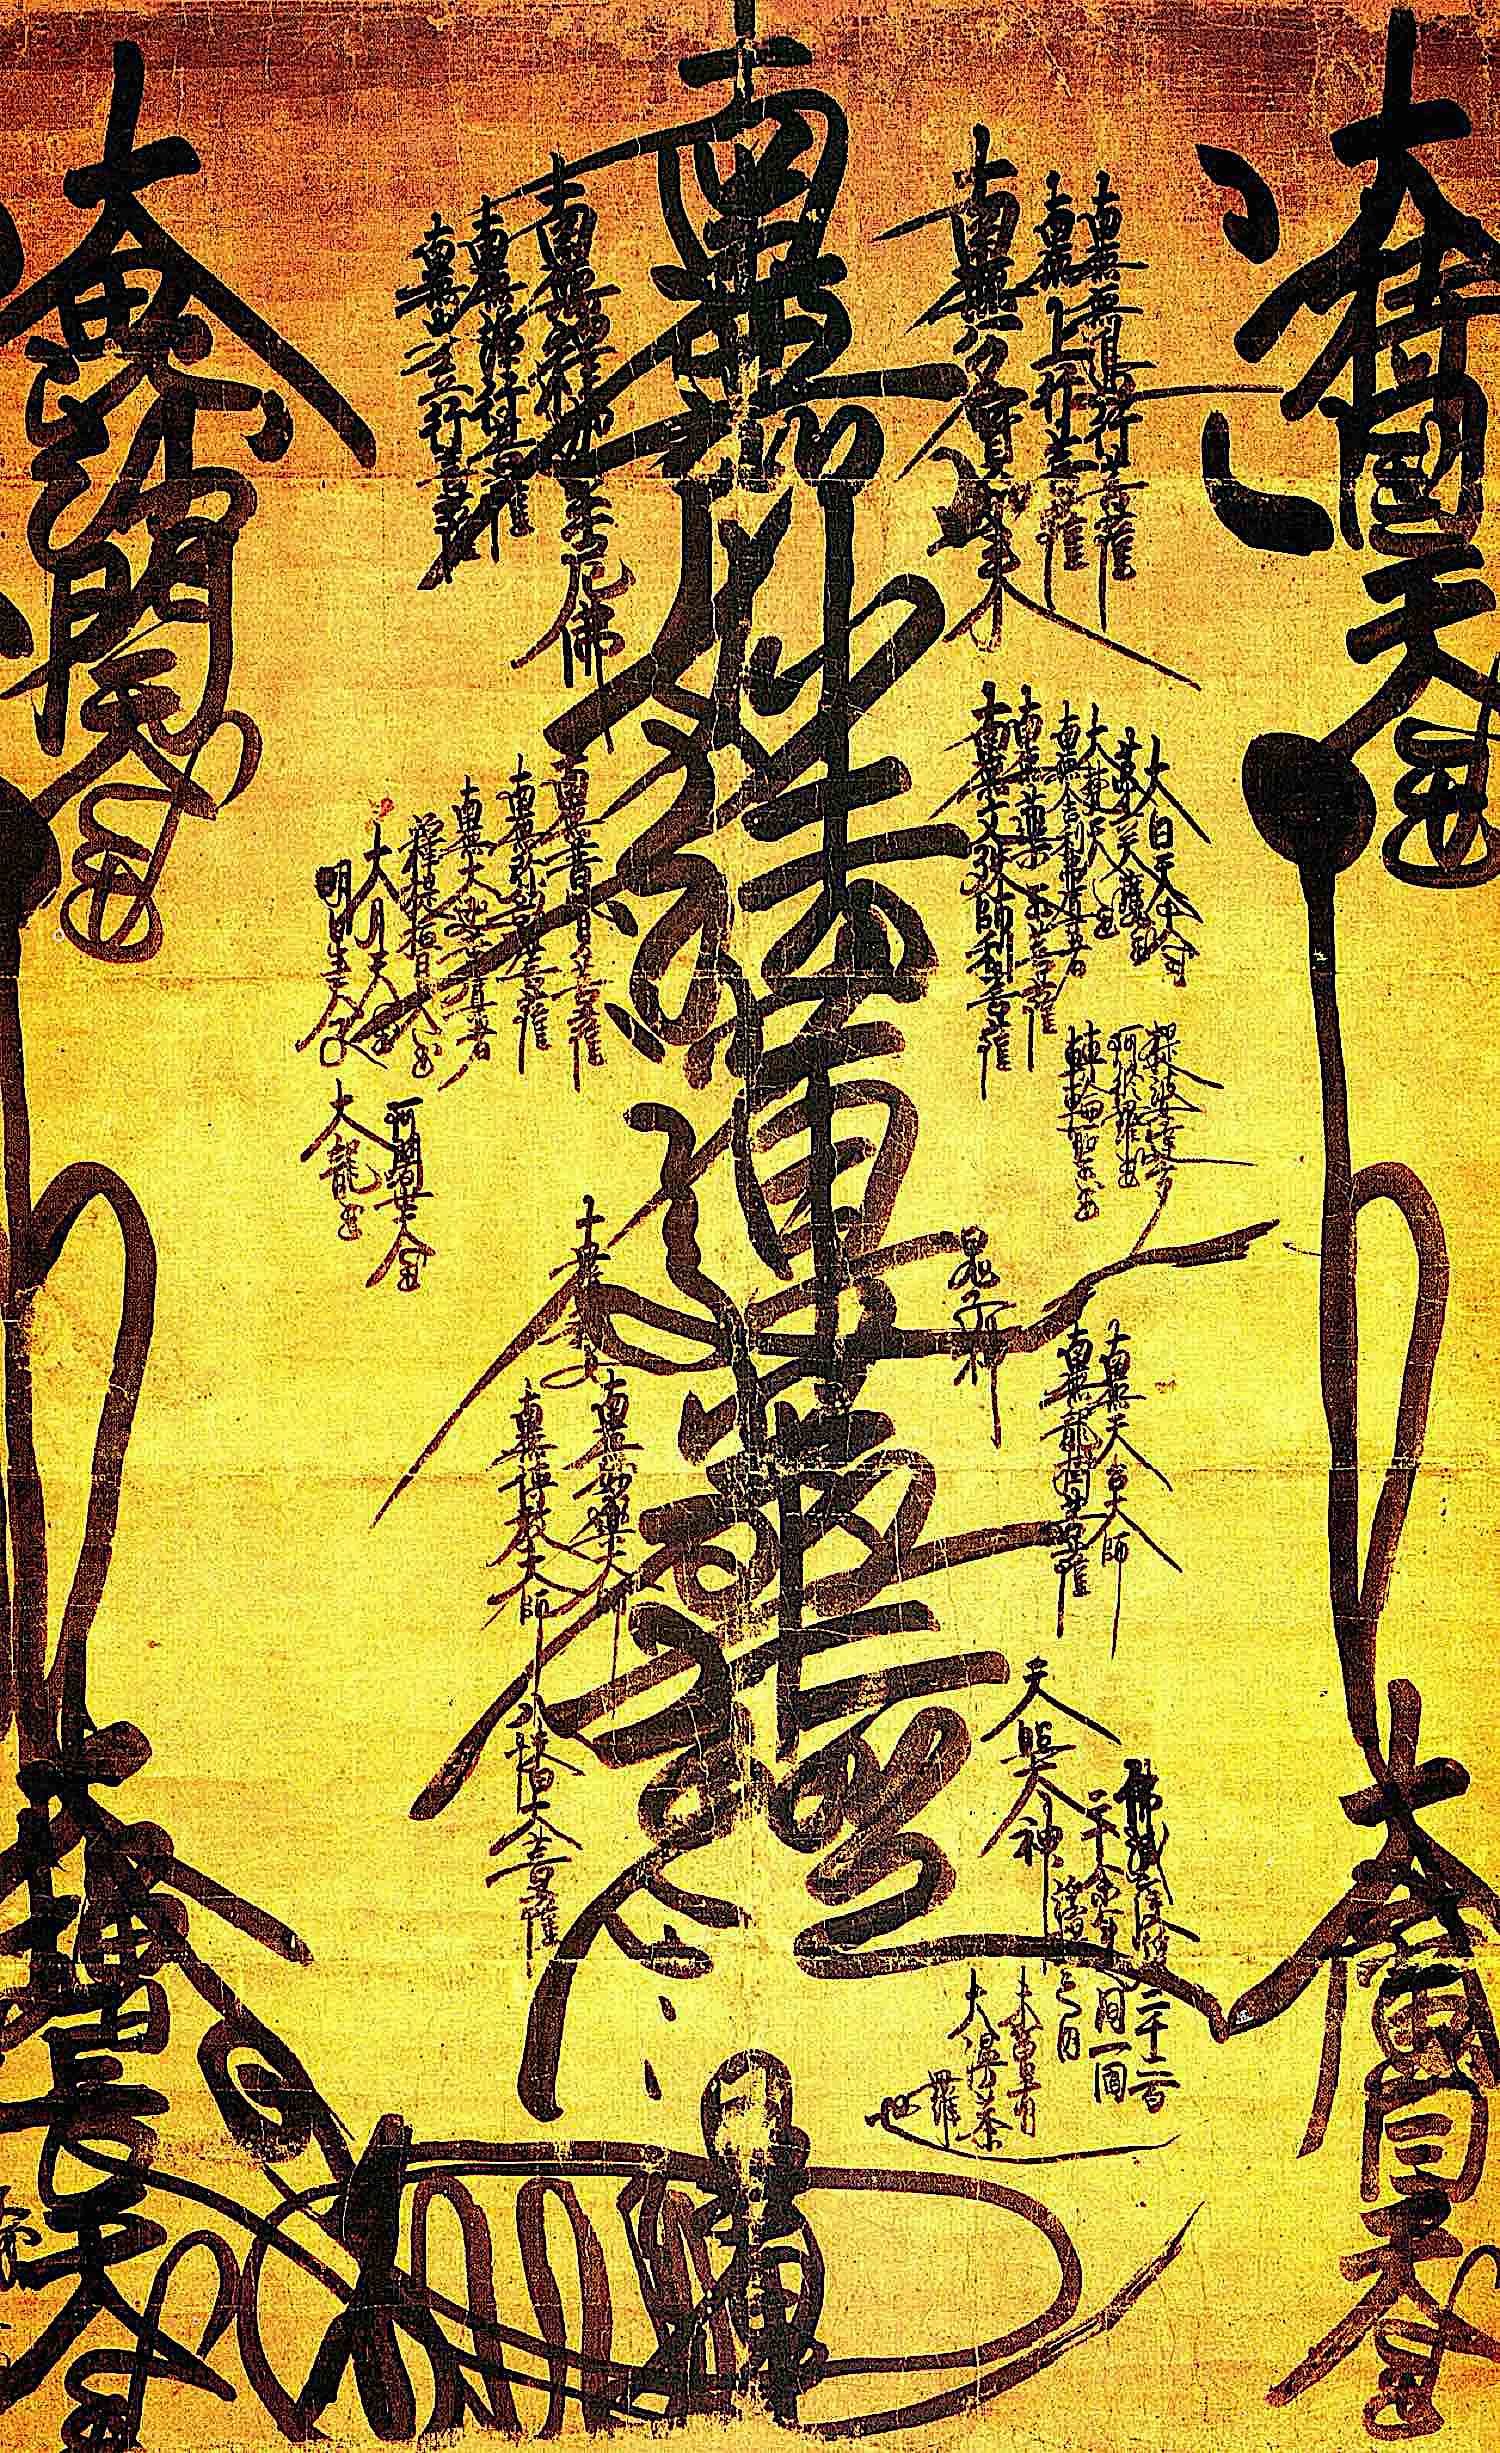 大持國天王
南無無邊行菩薩
南無上行菩薩
南無多寳如来
南無妙法蓮華経
南無釋迦牟尼佛
南無浄行菩薩
南無安立行菩薩
大毘沙門天王
大日天王
大梵天王
南無舎利弗尊者
南無薬王菩薩
南無文殊師利菩薩
南無普賢菩薩
南無弥勒菩薩
南無大迦葉尊者
釋提桓因大王
大月天王
明星天子
提婆達多
阿修羅王
轉輪聖王
阿闍世大王
大龍王
鬼子母神
十羅刹女
南無天台大師
南無龍樹菩薩
南無妙樂大師
南無傳教大師
天照大神
八幡大菩薩
佛滅度後二千二百
二十余年之間一閻
浮提之内
未曾有
大漫荼
羅也
大廣目天王
日蓮
大増長天王